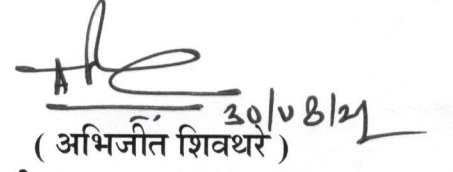 30/08/21
( अभिजीत शिवथरे )